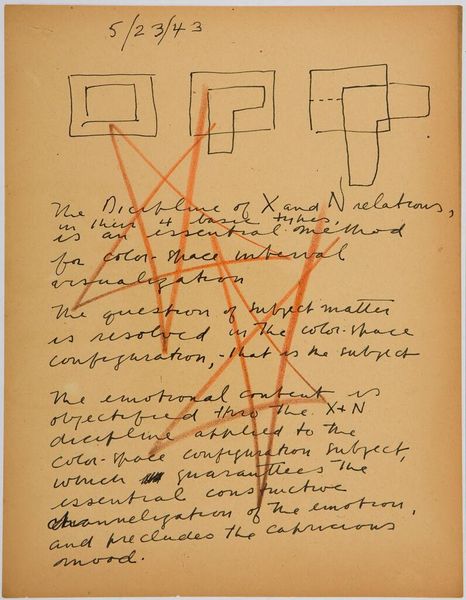 5/23/43
The Discipline of X and N relations,
in their 4 basic types,
is an essential method
for color-space interval
visualization
The question of subject matter
is resolved in the color-space
configuration, - that is the subject
The emotional content is
objectified thro the X+N
discipline applied to the
color-space configuration subject,
which guarauttees the
essential constructive
channelization of the emotion,
and precludes the capricious
mood.